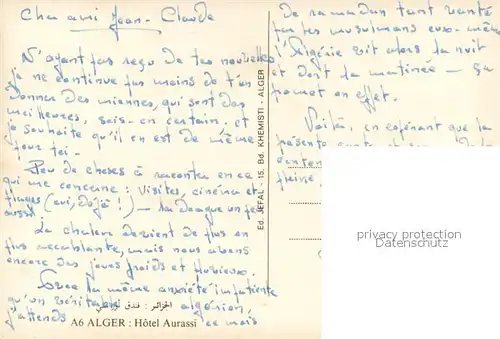 Cher ami Jean-Claude
N'ayant pas reçu de tes nouvelles
je ne continue pas moins de t'en
donner des miennes, qui sont des
meilleures, sois-en certain. et
je souhaite qu'il en est de même
pour toi-
Peu de choses à raconter en ce
qui me concerne: visites, cinéma et
plages (oui, déjà!) - la drague un peu
aussi
La chaleur devient de plus en
plus accablante, mais nous avons
encore des jours froids et pluvieux.
Avec la même anxiété impatiente
qu'un véritable algérien,
j'attends ce mois
الجزائر: فندق
A6 ALGER : Hôtel Aurassi
Ed. JEFAL - 15, Bd. KHEMISTI - ALGER
De ramadan tant vanté
par les musulmans eux-mêmes
l'Algérie vit alors la nuit
et dort la matinée - ça
promet en effet.
Voilà, en espérant que la
présente
plaisir
privacy protection
Datenschutz